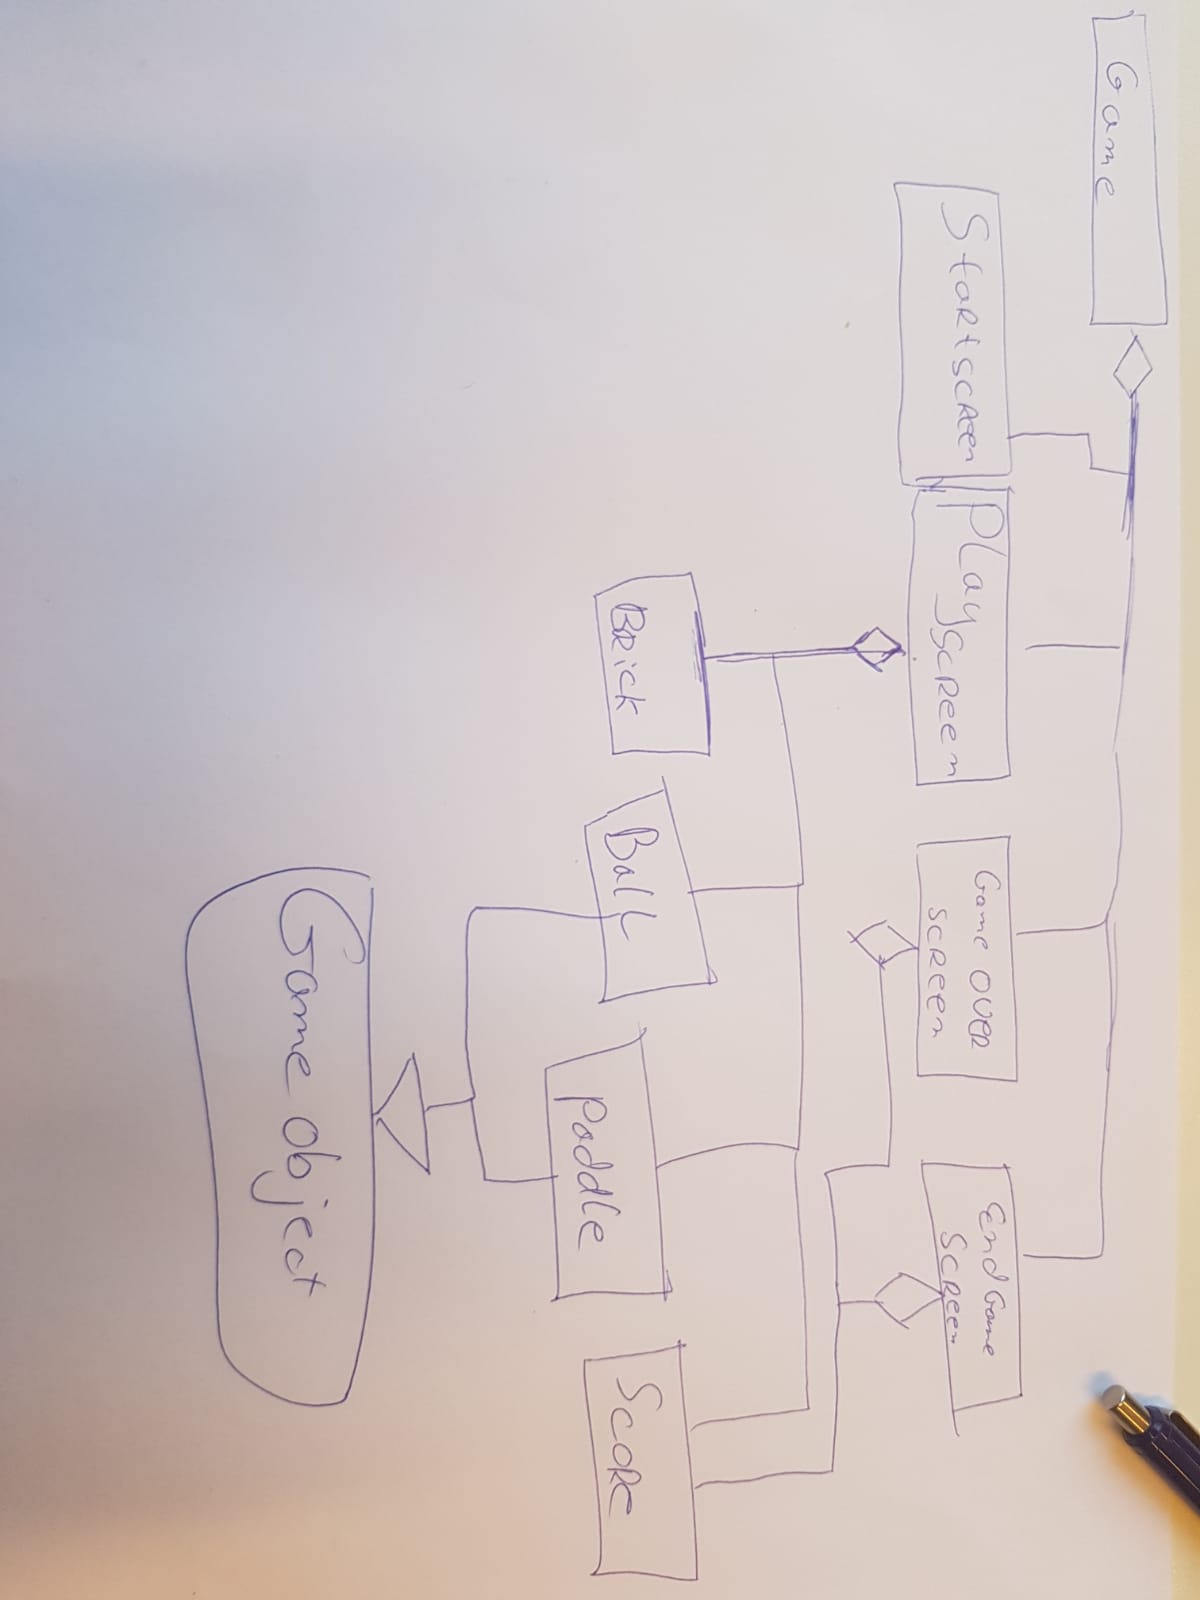 Game
Startscreen
Playscreen
Game over
screen
End Game
Screen
Brick
Ball
Paddle
Score
Game object